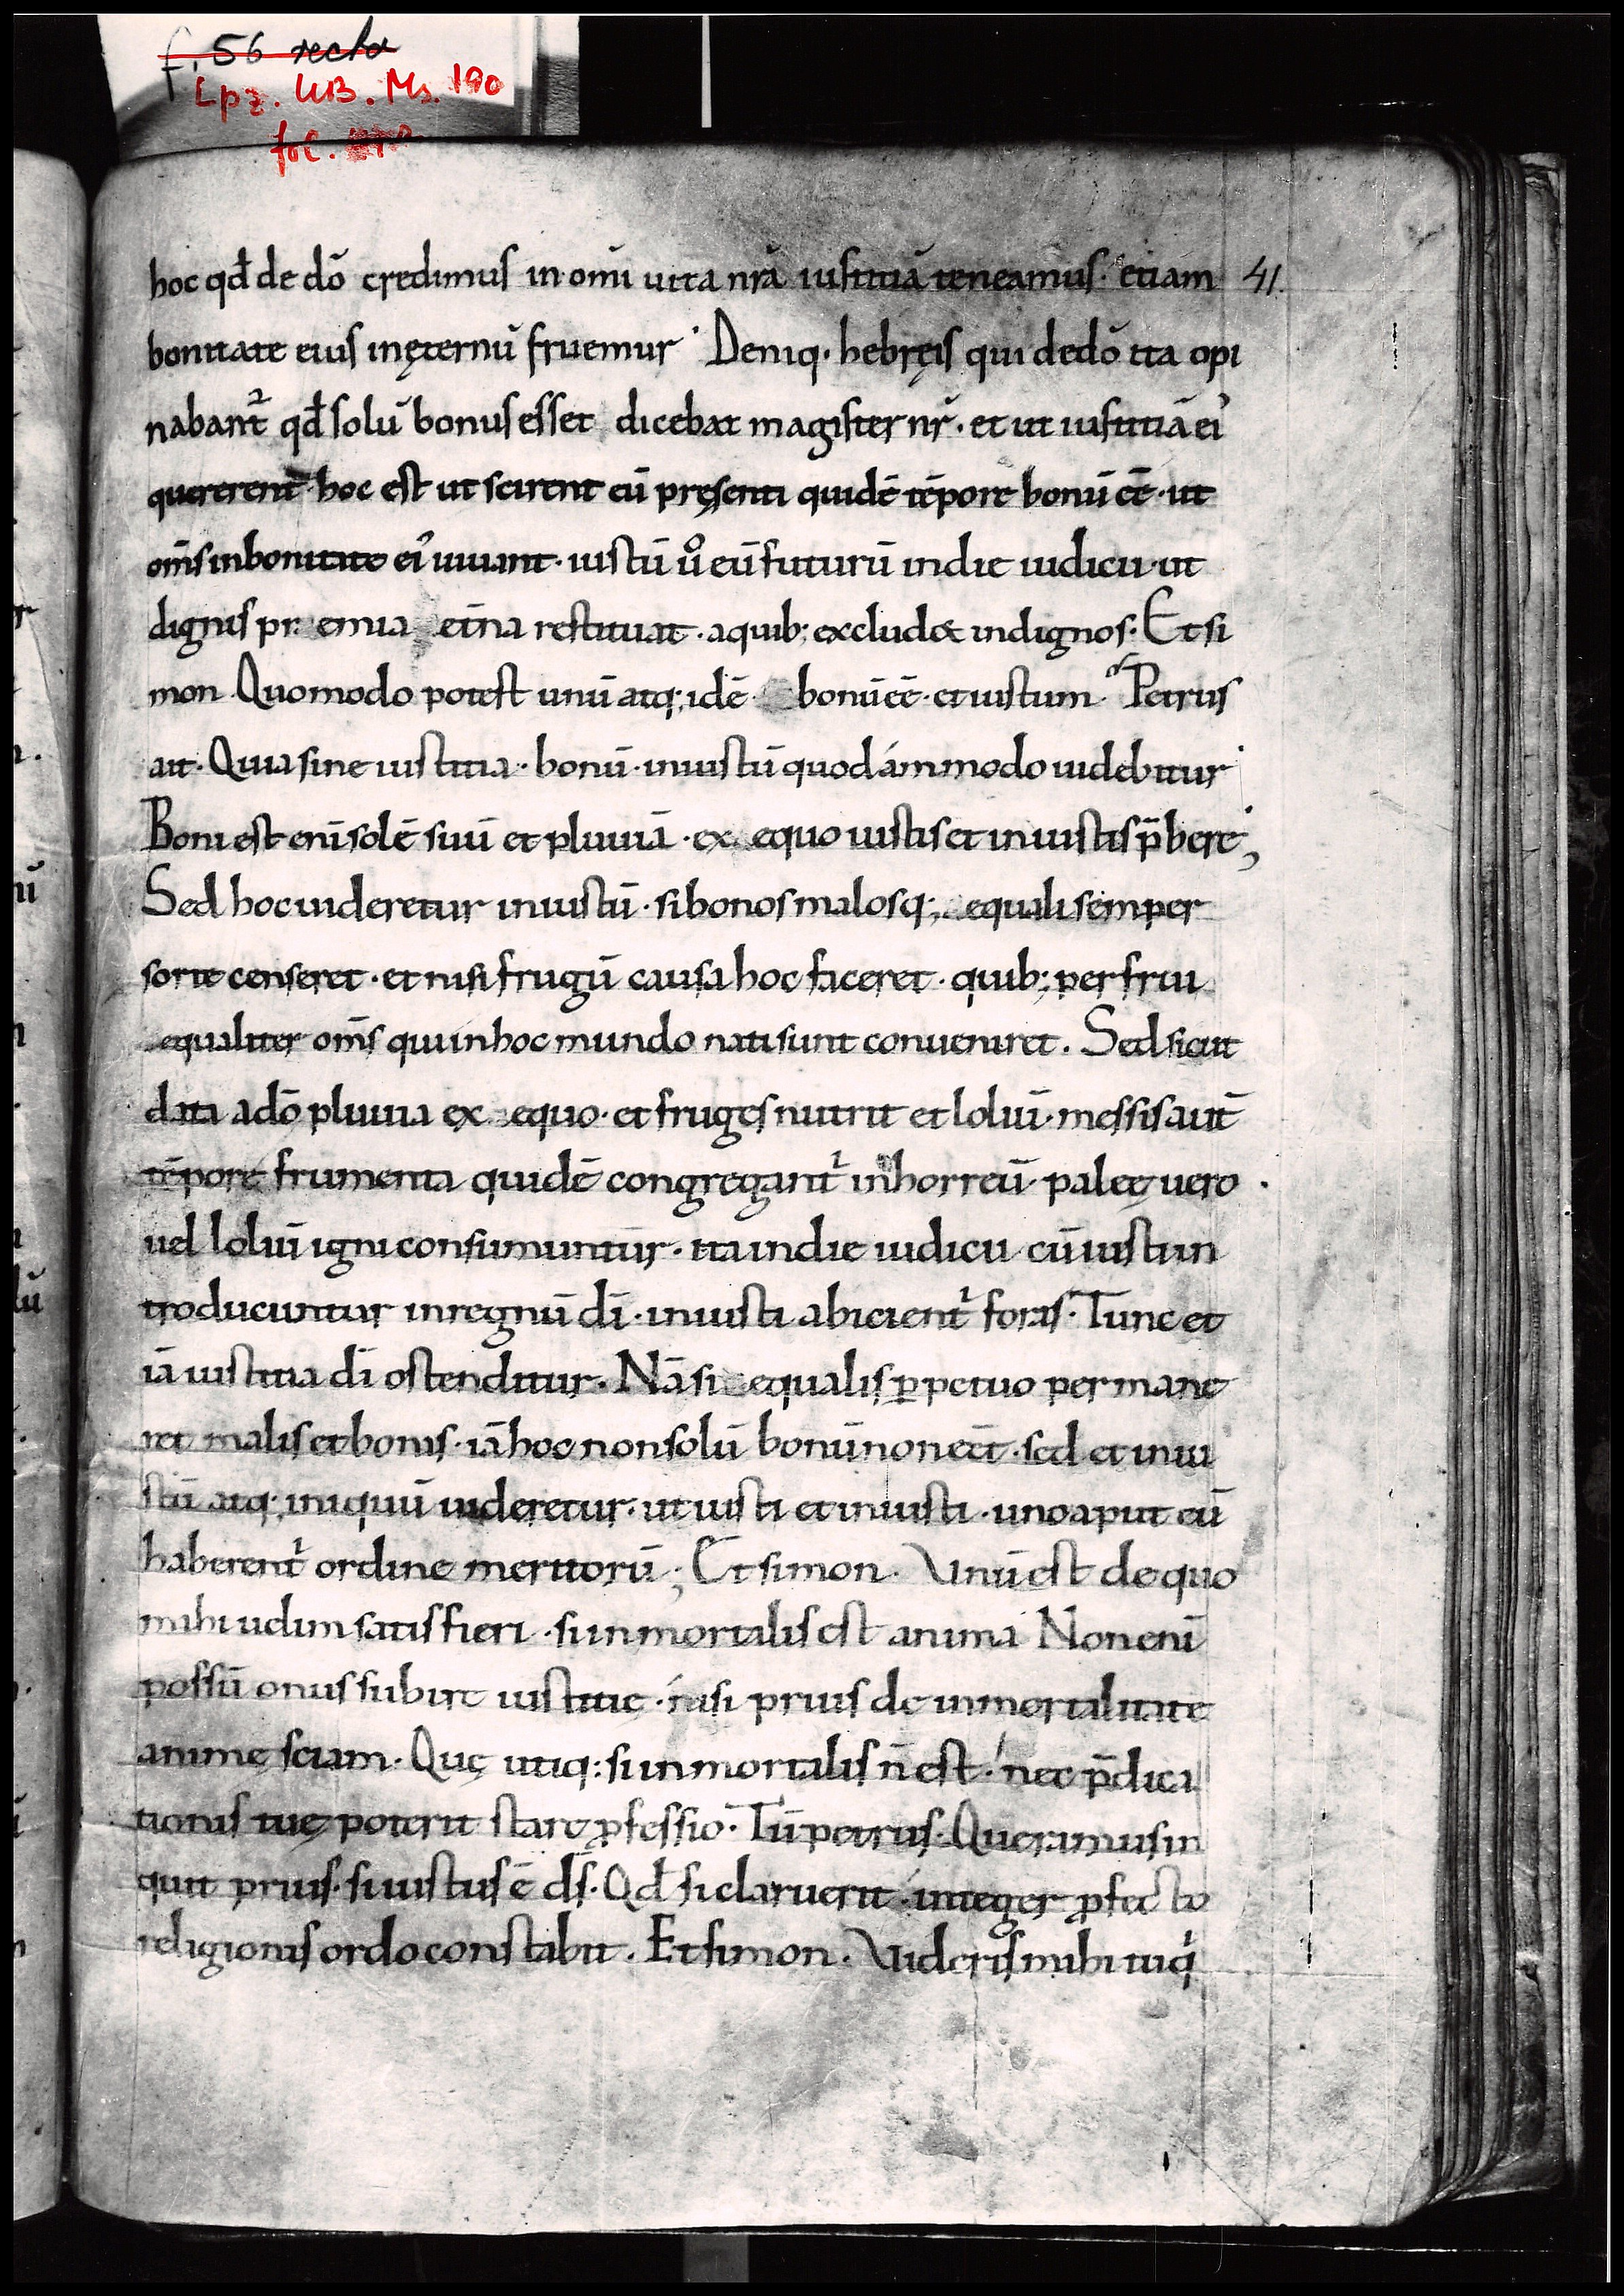 f. 56 recto
Lpz. UB. Ms. 190
fol.
41.
hoc qđ de dō credimus in omī uita nr̄a iustitiā teneamus· etiam
bonitate eius inęternū fruemur· Deniq· hebręis qui dedō ita opi
nabant᷑ qđ solū bonus esset dicebat magister nr̄· et ut iustitiā ei᾽
quererent᷑ hoc est ut scirent eū pręsenti quidē tēpore bonū eē· ut
om̄s inbonitate ei᾽ uiuant· iustū u͛o eū futurū indie iudicii· ut
dignis pr emia et̄na restituat· aquib; exclud& indignos· Et si
mon Quomodo potest unū atq; idē bonū eē· et iustum· Petrus
ait· Quia sine iustitia· bonū· iniustū quodámmodo uidebitur
Boni est enī solē suū et pluuiā· ex equo iustis et iniustis p̄bere;
Sed hoc uideretur iniustū· si bonos malosq; equali semper
sorte censeret· et nisi frugū causa hoc faceret· quib; perfrui
equaliter om̄s qui inhoc mundo nati sunt conueniret. Sed sicut
data adō pluuia ex equo· et fruges nutrit et loliū· messis aut̄
tēpore frumenta quidē congregant᷑ in horreū· paleę uero·
uel loliū igni consumuntur· ita indie iudicii cū iusti in
troducuntur inregnū dī· iniusti abicient᷑ foras· Tunc et
iā iustitia dī ostenditur· Nā si equalis ꝑpetuo permane
ret malis et bonis· iā hoc non solū bonū non eēt· sed et iniu
stū atq; iniquū uideretur· ut iusti et iniusti· uno aput eū
haberent᷑ ordine meritorū; Et simon· Vnū est de quo
mihi uelim satis fieri· si inmortalis est anima Non enī
possū onus subire iustitie· nisi prius de inmortalitate
animę sciam· Quę utiq: si inmortalis n̄ est· nec p̄dica
tionis tuę poterit stare ꝓfessio· Tū petrus· Queramus in
quit prius· si iustus ē ds̄· Qđ si claruerit· integer ꝓfecto
religionis ordo constabit. Et simon· Videris mihi